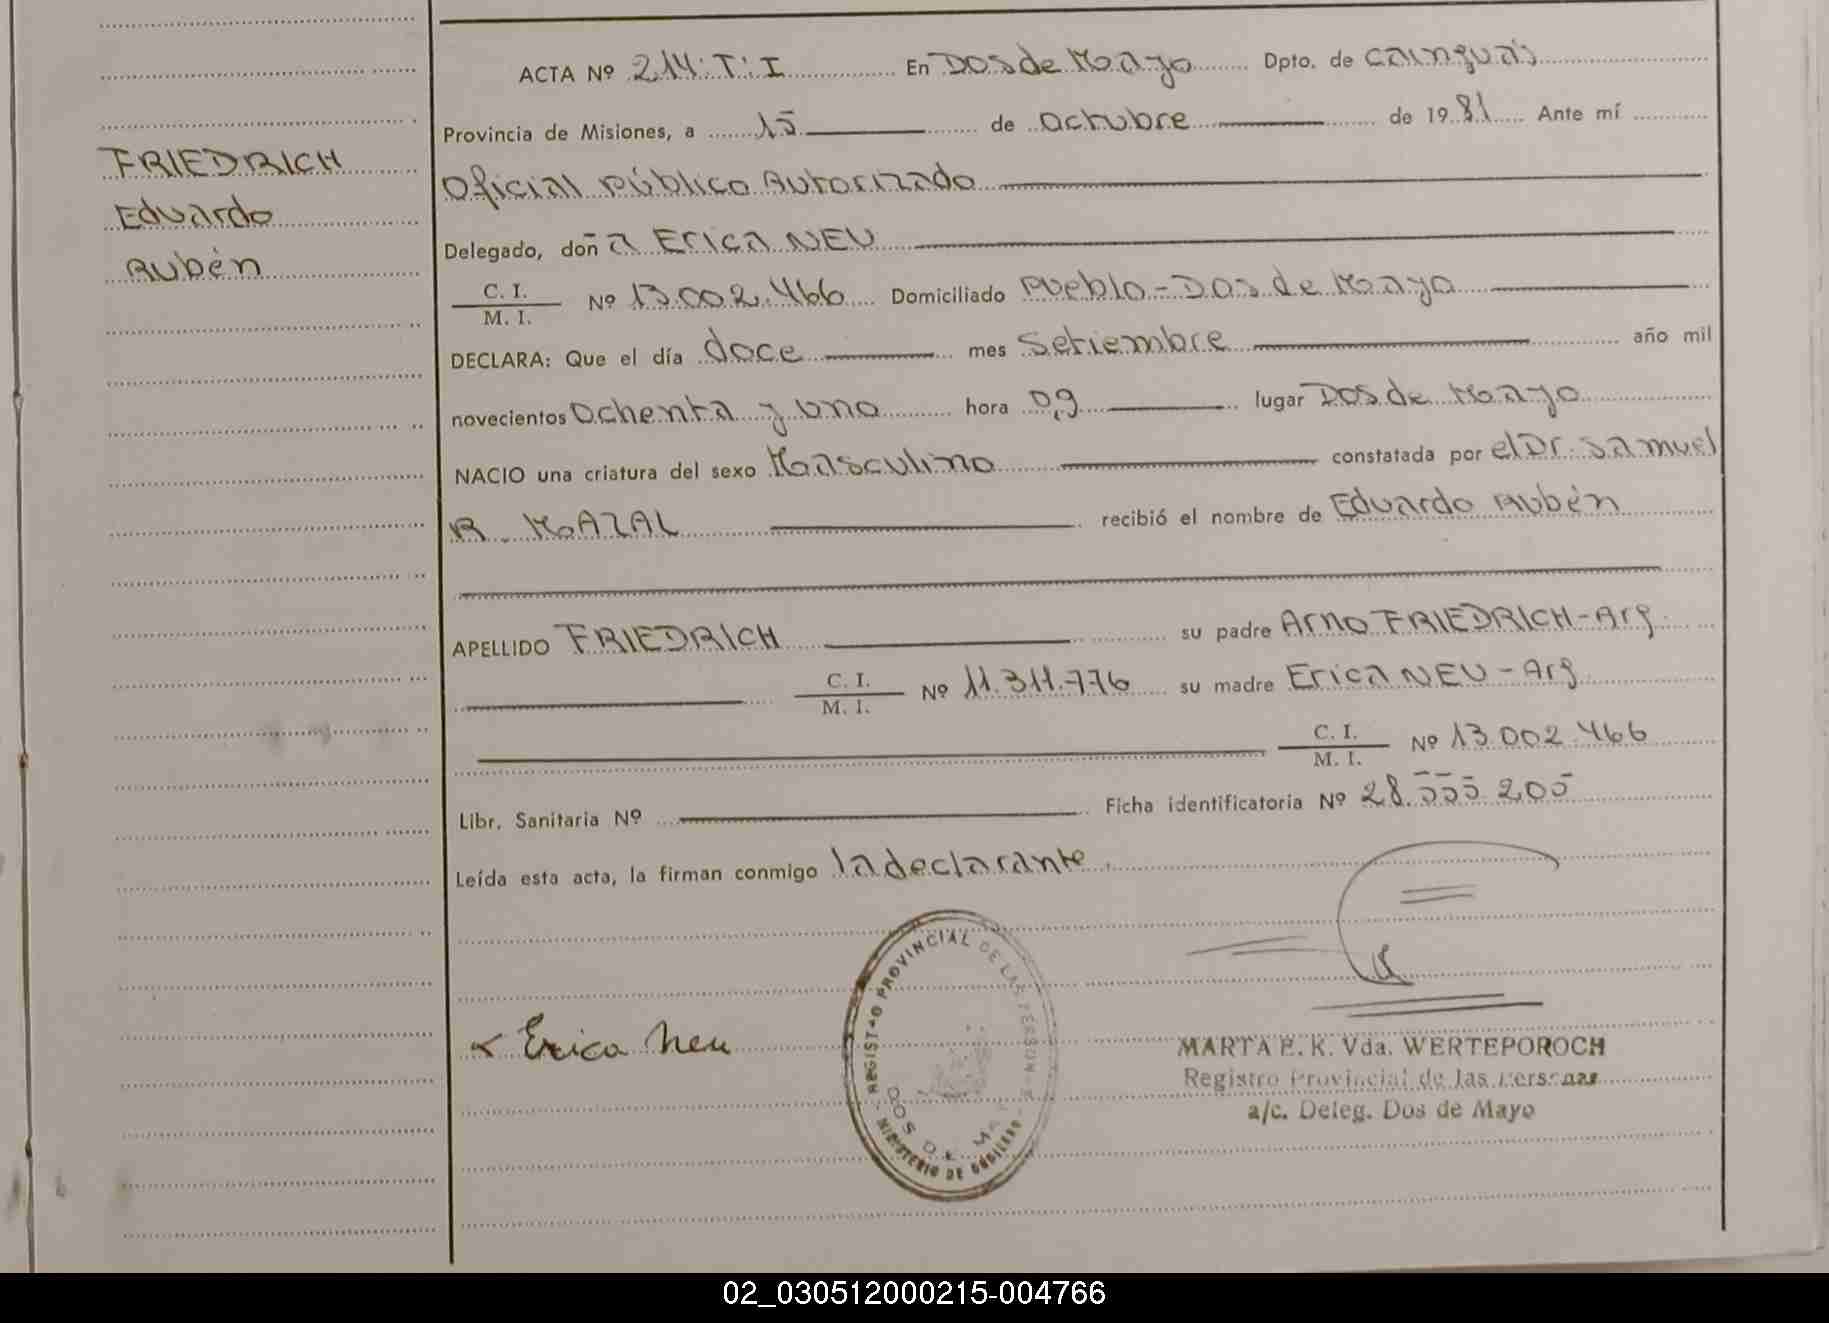 FRIEDRICH
Eduardo
Rubén
ACTA Nº 214: T: I En Dos de Mayo Dpto. de Cainguás
Provincia de Misiones, a 15 de octubre de 1981 Ante mí
Oficial Público Autorizado
Delegado, doña Erica NEU
C. I. / M. I. Nº 13.002.466 Domiciliado Pueblo - Dos de Mayo
DECLARA: Que el día doce mes Setiembre año mil
novecientos ochenta y uno hora 09 lugar Dos de Mayo
NACIO una criatura del sexo Masculino constatada por el Dr. Samuel
R. MAZAL recibió el nombre de Eduardo Rubén
APELLIDO FRIEDRICH su padre Arno FRIEDRICH - Arg.
C. I. / M. I. Nº 11.311.776 su madre Erica NEU - Arg
C. I. / M. I. Nº 13.002.466
Libr. Sanitaria Nº Ficha identificatoria Nº 28.555.205
Leída esta acta, la firman conmigo la declarante.
Erica Neu
REGISTRO PROVINCIAL DE LAS PERSONAS
DOS DE MAYO
MINISTERIO DE GOBIERNO
MARTA E. K. Vda. WERTEPOROCH
Registro Provincial de las Personas
a/c. Deleg. Dos de Mayo
02_030512000215-004766